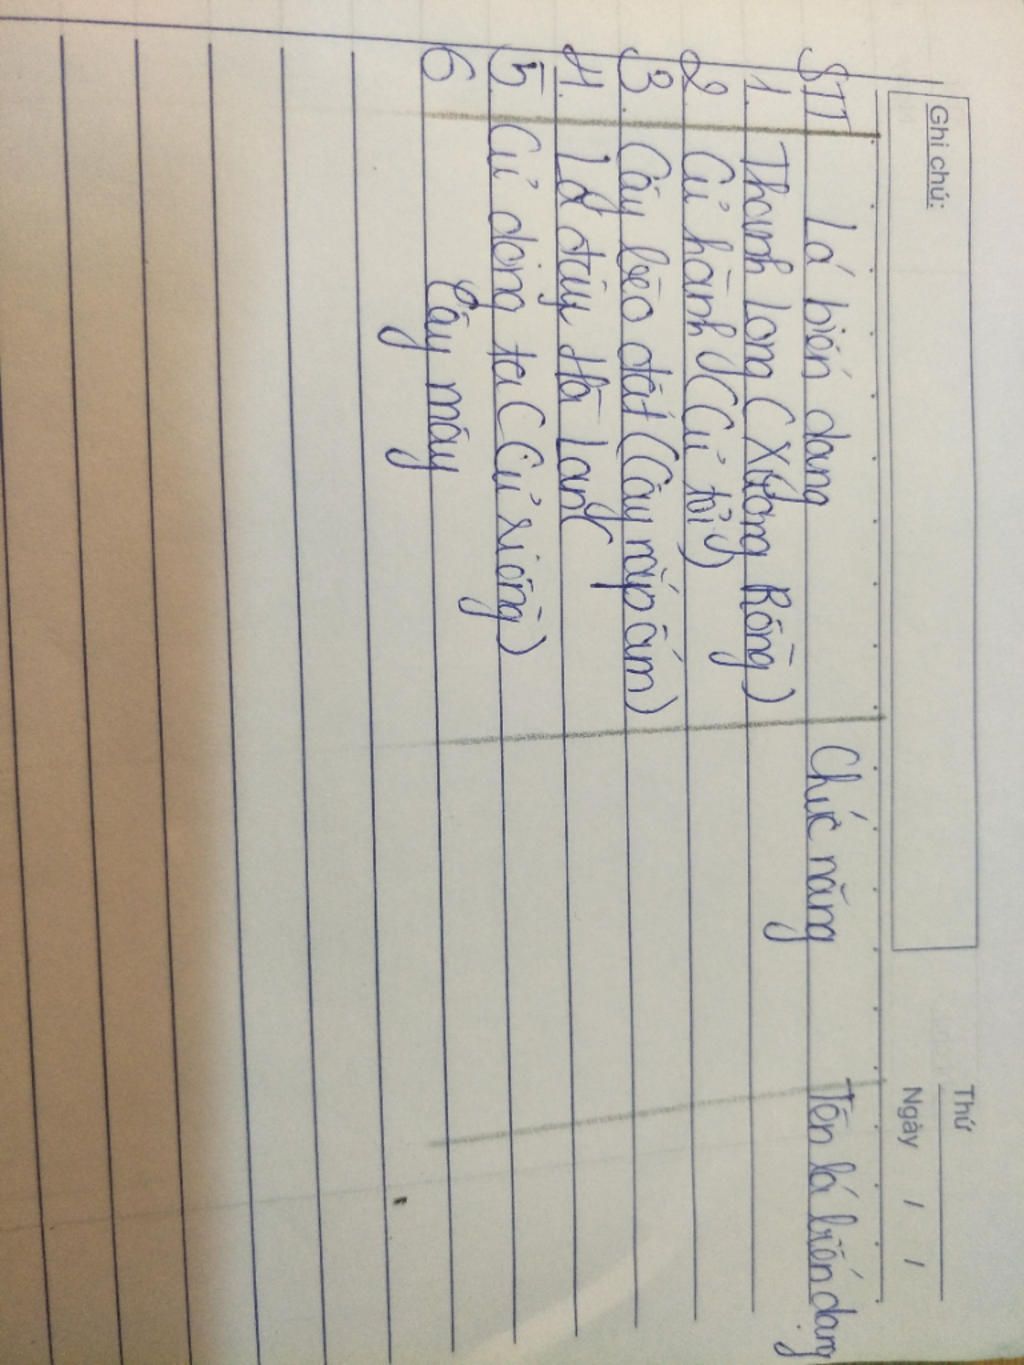 Ghi chú:
Thứ
Ngày / /
STT Lá biến dạng Chức năng Tên lá biến dạng
1. Thanh long (Xương Rồng)
2. Củ hành (Củ tỏi)
3. Cây bèo đất (Cây nắp ấm)
4. Lá đậu Hà Lan
5. Củ dong ta (Củ riềng)
6 Cây mây